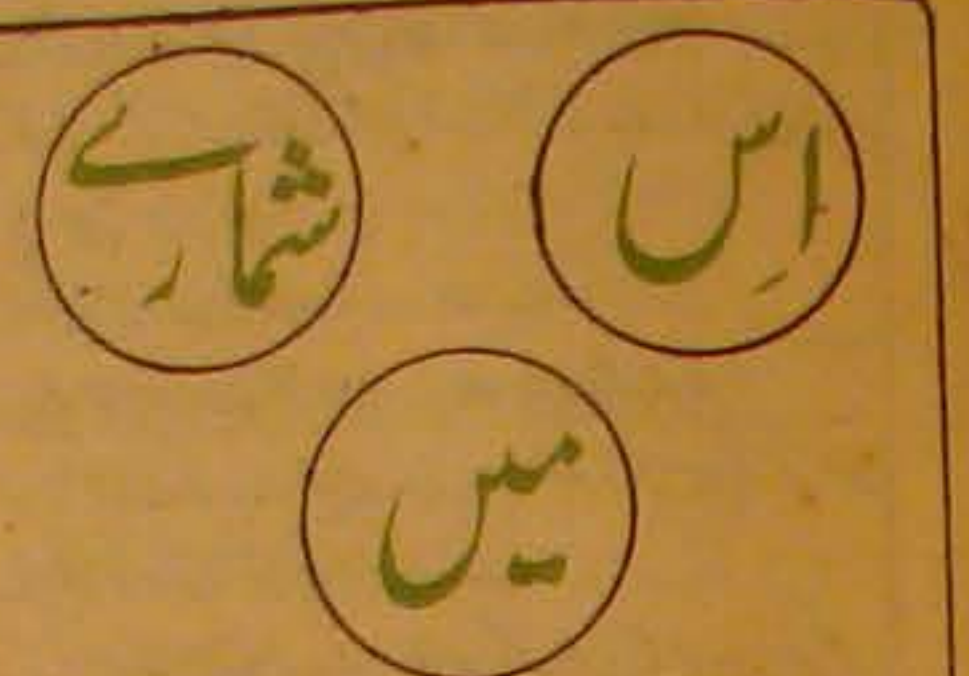 اِس شمارے
میں